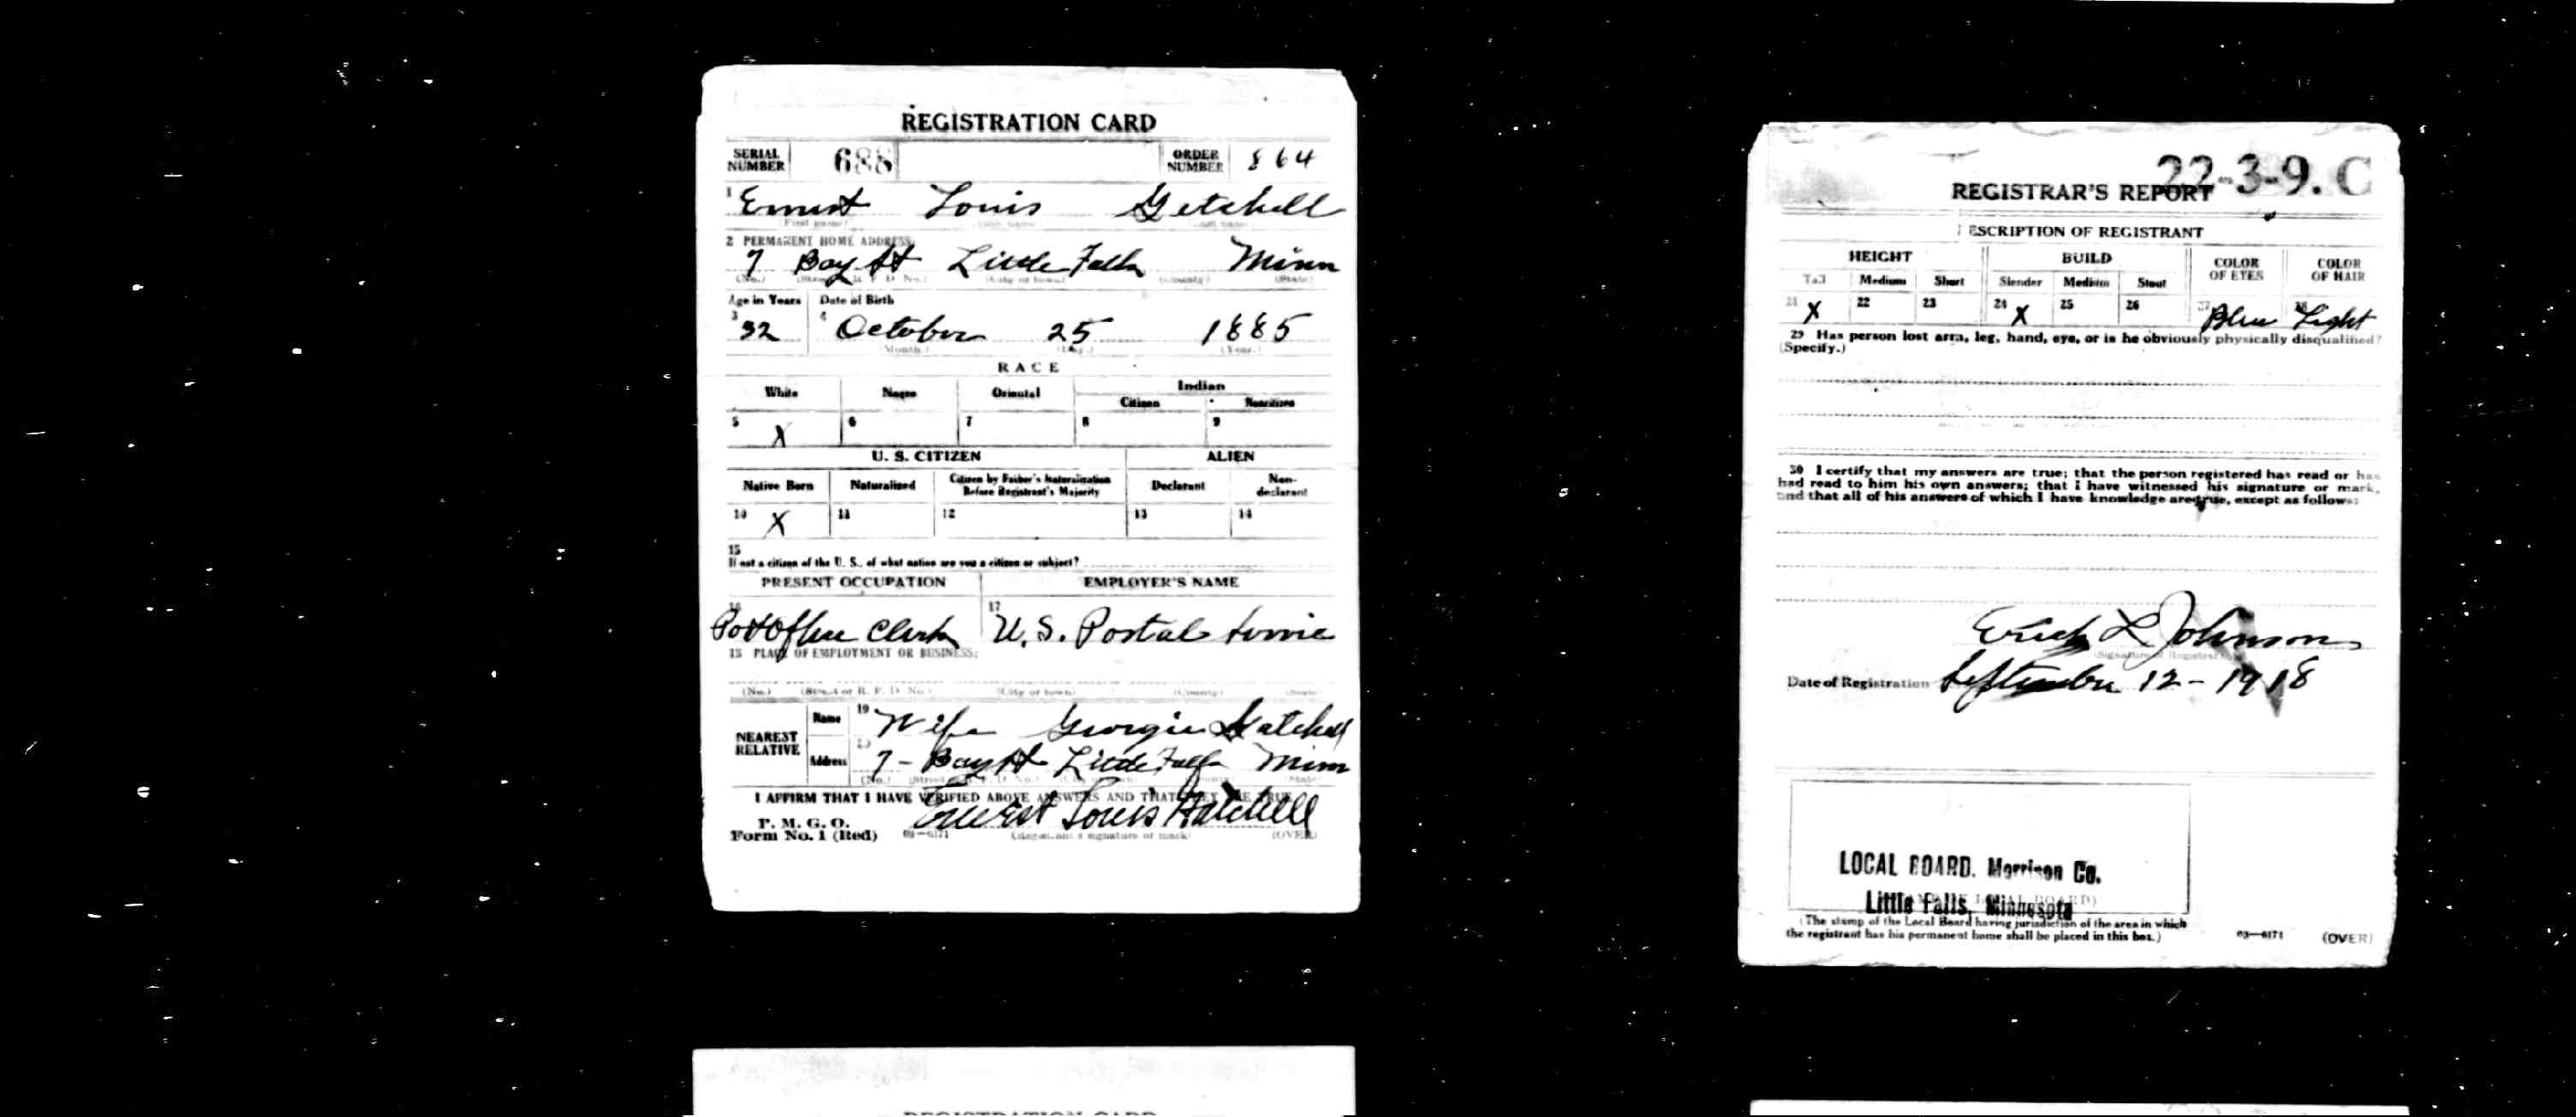 REGISTRATION CARD
SERIAL NUMBER 688 ORDER NUMBER 864
1 Ernest Louis Getchell
(First name) (Middle name) (Last name)
2 PERMANENT HOME ADDRESS:
7 Bay St Little Falls Minn
(No.) (Street or R. F. D. No.) (City or town) (County) (State)
Age in Years Date of Birth
3 32 4 October 25 1885
(Month.) (Day.) (Year.)
RACE
White Negro Oriental Indian
Citizen Noncitizen
5 X 6 7 8 9
U. S. CITIZEN ALIEN
Native Born Naturalized Citizen by Father's Naturalization Before Registrant's Majority Declarant Non-declarant
10 X 11 12 13 14
15
If not a citizen of the U. S., of what nation are you a citizen or subject?
PRESENT OCCUPATION EMPLOYER'S NAME
16 Post Office Clerk 17 U. S. Postal Service
18 PLACE OF EMPLOYMENT OR BUSINESS:
(No.) (Street or R. F. D. No.) (City or town) (County) (State)
NEAREST RELATIVE Name 19 Wife Georgie
Address 20 7 - Bay St Little Falls Minn
(No.) (Street or R. F. D. No.) (City or town) (County) (State)
I AFFIRM THAT I HAVE VERIFIED ABOVE ANSWERS AND THAT THEY ARE TRUE
P. M. G. O.
Form No. 1 (Red) 03—6171 Ernest Louis
(Registrant's signature or mark) (OVER)
REGISTRATION CARD
22-3-9. C
REGISTRAR'S REPORT
DESCRIPTION OF REGISTRANT
HEIGHT BUILD COLOR OF EYES COLOR OF HAIR
Tall Medium Short Slender Medium Stout
21 X 22 23 24 X 25 26 27 Blue 28 Light
29 Has person lost arm, leg, hand, eye, or is he obviously physically disqualified?
(Specify.)
30 I certify that my answers are true; that the person registered has read or has
had read to him his own answers; that I have witnessed his signature or mark,
and that all of his answers of which I have knowledge are true, except as follows:
Erick L Johnson
(Signature of Registrar)
Date of Registration September 12 - 1918
LOCAL BOARD. Morrison Co.
Little Falls, Minnesota
(The stamp of the Local Board having jurisdiction of the area in which
the registrant has his permanent home shall be placed in this box.)
03—6171 (OVER)